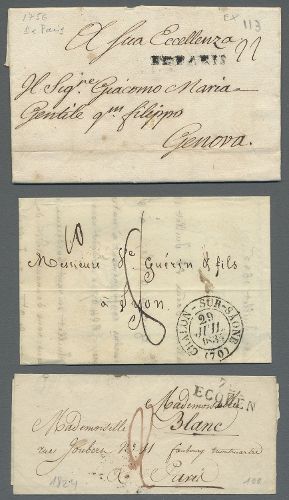 1756
De Paris
EX
113
A Sua Eccellenza
22
DE PARIS
Il Sig.re Giacomo Maria
Gentile qm filippo
Genova.
10
Messieurs Ve Guérin & fils
à Lyon
8
CHALON-SUR-SAONE
29
JUIL
(70)
ECOUEN
Mademoiselle
Blanc
Mademoiselle
rue Joubert No 41
faubourg
2
A Paris
100